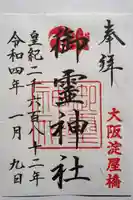 奉拝
大阪淀屋橋
御靈神社
皇紀二千六百八十二年
令和四年 一月 九日